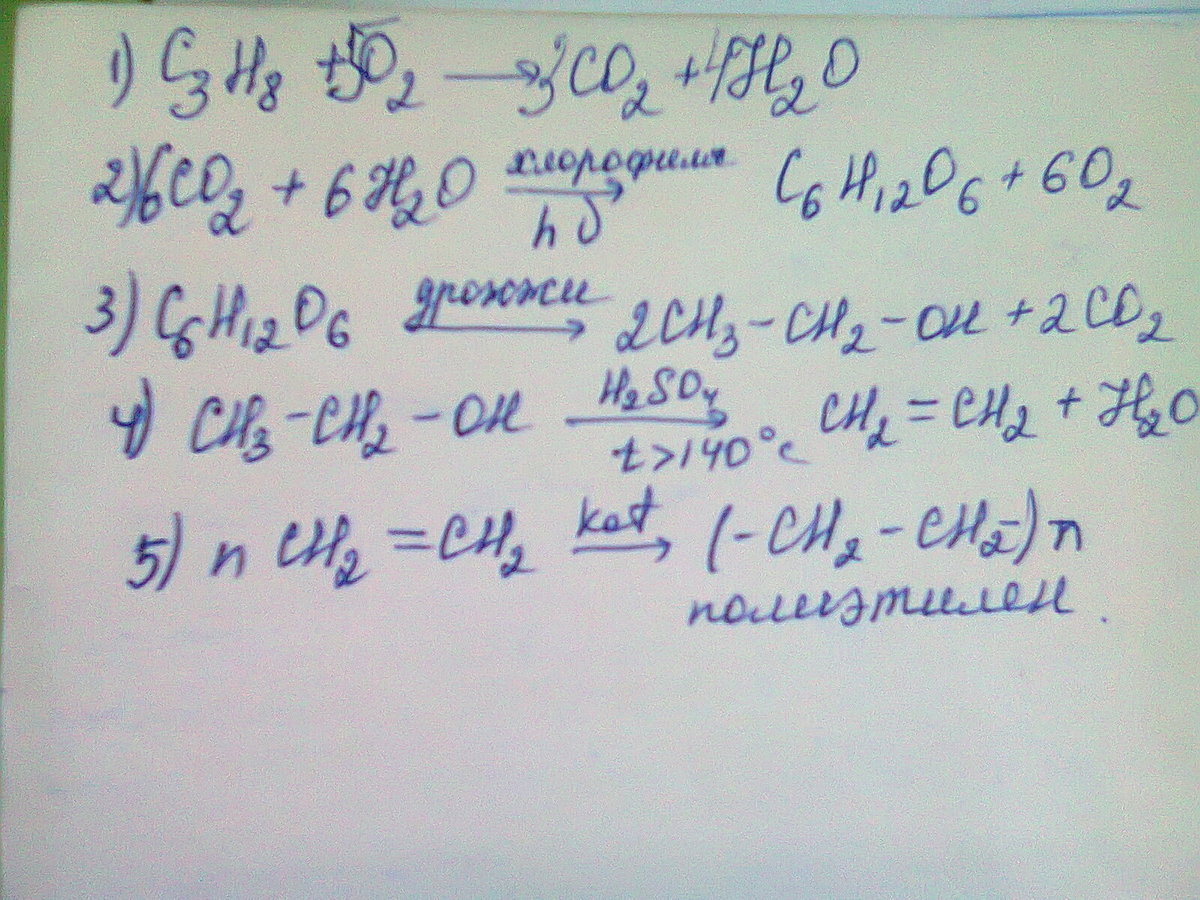 1) C₃H₈ + 5O₂ ⟶ 3CO₂ + 4H₂O
2) 6CO₂ + 6H₂O хлорофилл ⟶ hν C₆H₁₂O₆ + 6O₂
3) C₆H₁₂O₆ дрожжи ⟶ 2CH₃ – CH₂ – OH + 2CO₂
4) CH₃ – CH₂ – OH H₂SO₄ ⟶ t > 140°c CH₂ = CH₂ + H₂O
5) n CH₂ = CH₂ kat ⟶ (– CH₂ – CH₂ –) n
полиэтилен.